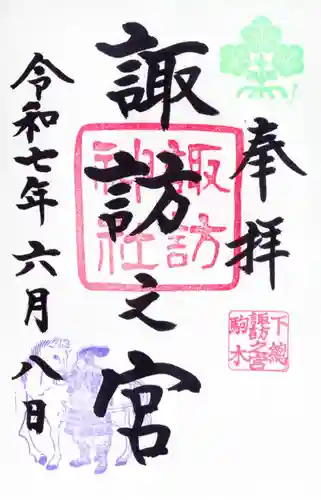 奉拝
下總
諏訪之宮
駒木
諏訪之宮
諏訪
神社
令和七年六月八日